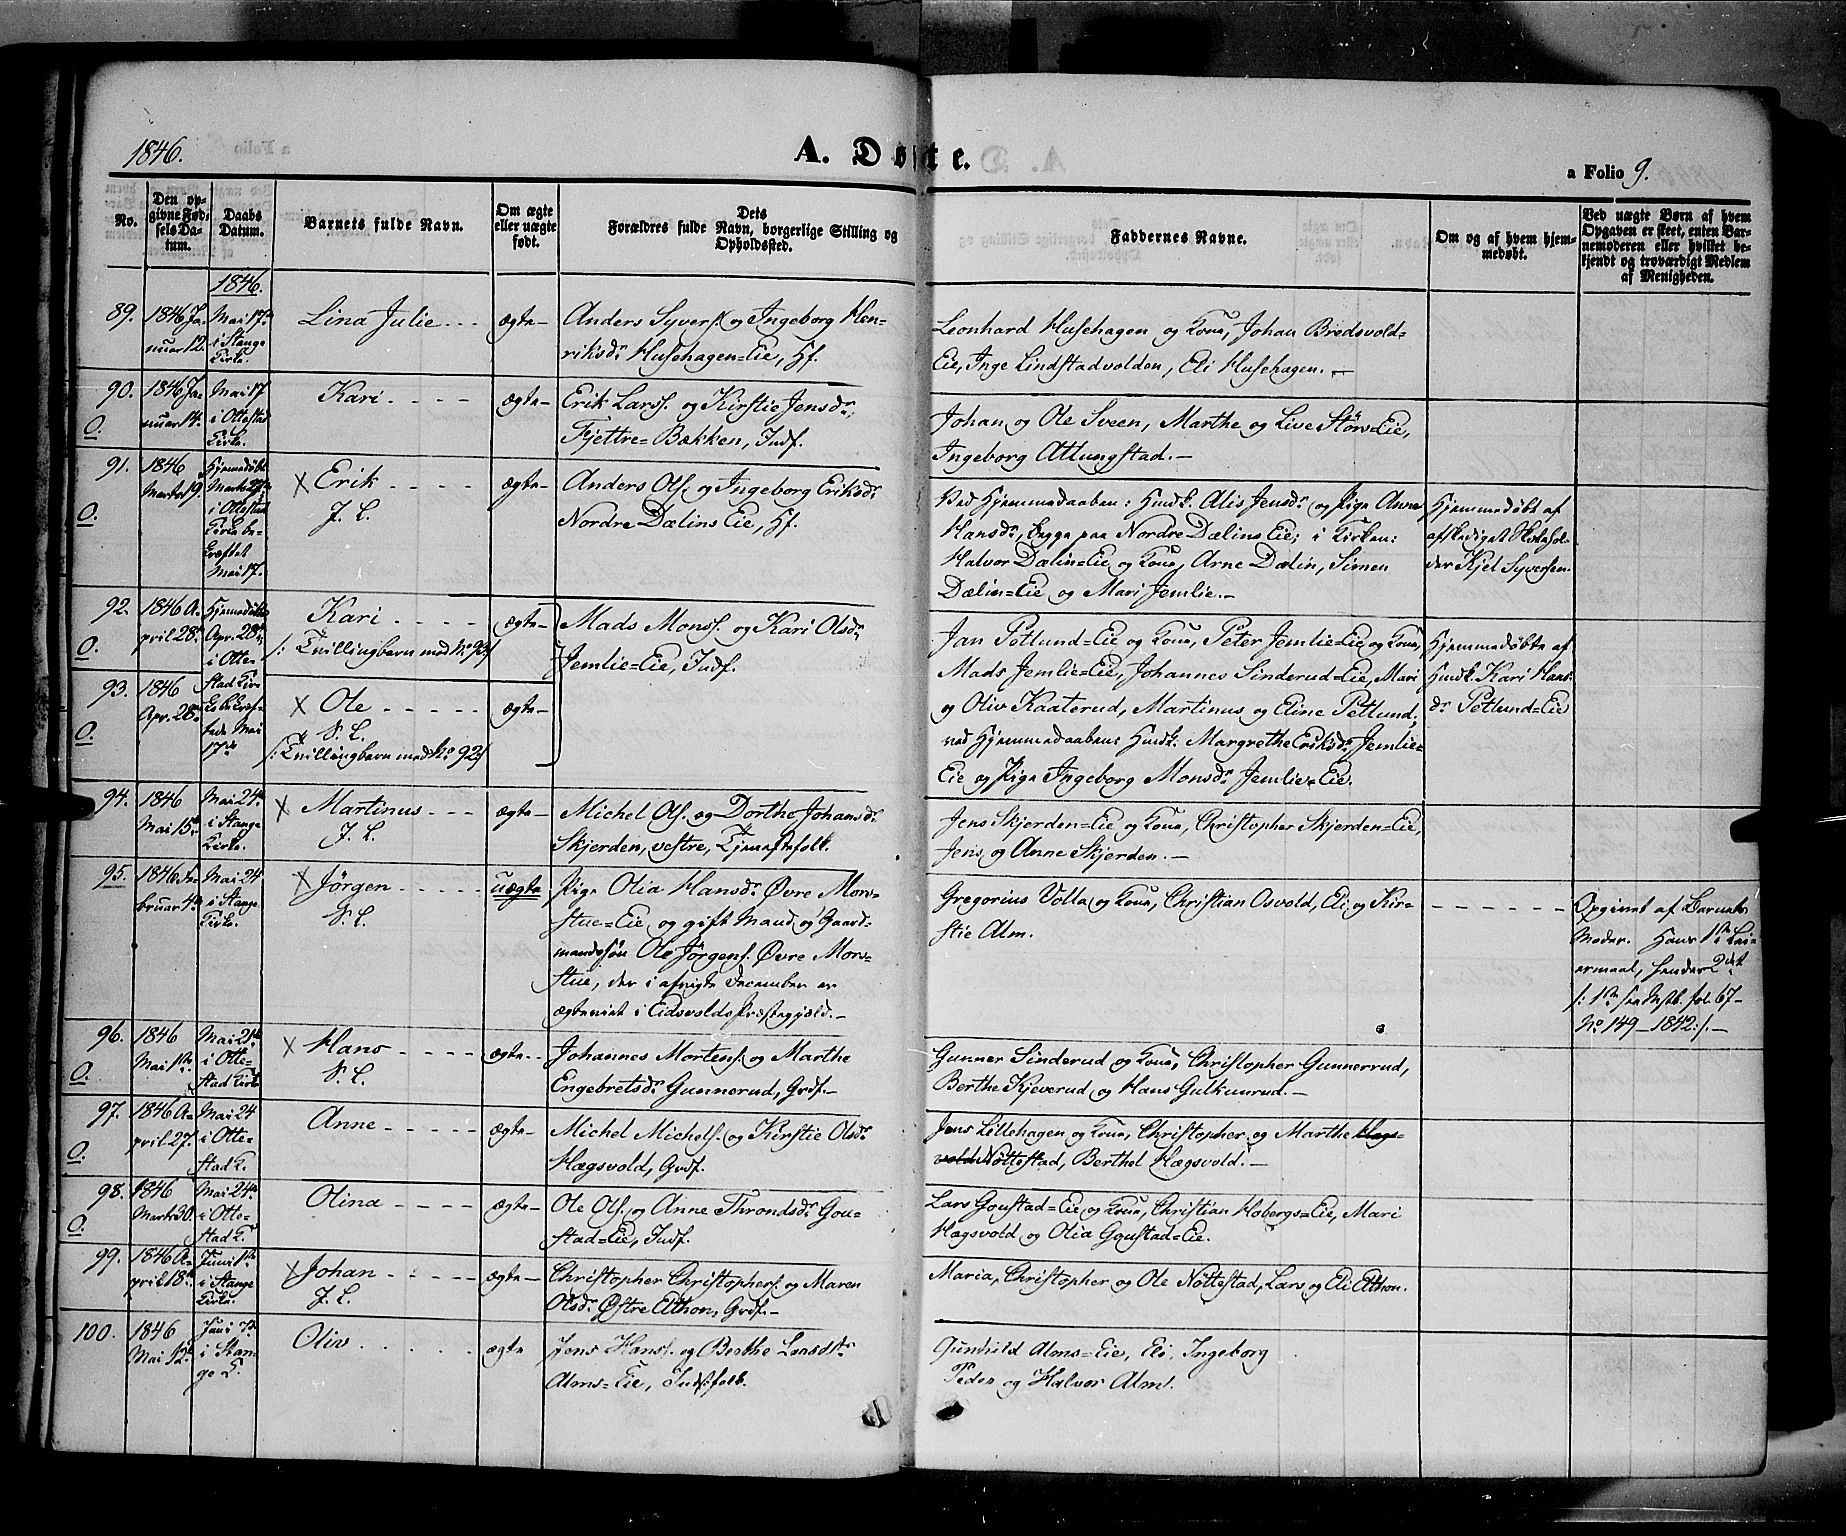 1846.
A. Døbte.
a Folio 9.
No.
Den op-
givne Fød-
sels Da-
tum.
Daabs
Datum.
Barnets fulde Navn.
Om ægte
eller uægte
født.
Dets
Forældres fulde Navn, borgerlige Stilling og
Opholdssted.
Faddernes Navne.
Om og af hvem hjem-
medøbt.
Ved uægte Børn af hvem
Opgaven er skeet, enten Bar-
nemoderen eller hvilket be-
kjendt og troværdigt Medlem
af Menigheden.
1846.
89.
1846 Ja-
nuar 12.
Mai 17de
i Stange
Kirke.
Lina Julie
ægte
Anders Syvers. og Ingeborg Hen-
riksdr. Husehagen=Eie, Hf.
Leonhard Husehagen og Kone, Johan Bredsvold=
Eie, Inge Lindstadvolden, Eli Husehagen.
90.
O.
1846 Ja-
nuar 14.
Mai 17
i Ottestad
Kirke.
Kari
ægte
Erik Larss. og Kirstie Jensdr.
Fjettre=Bækken, Indf.
Johan og Ole Sveen, Marthe og Live Störs=Eie,
Ingeborg Attungstad.
91.
O.
1846
Marts 19.
Hjemmedøbt
Marts 27de
i Ottestad
Kirke be-
kræftet
Mai 17.
X Erik
J. L.
ægte
Anders Ols. og Ingeborg Eriksdr.
Nordre Dælins Eie, Hf.
Ved Hjemmedaaben: Huusk. Alis Jensdr. og Pige Anne
Hansdr., begge paa Nordre Dælins Eie; i Kirken:
Halvor Dælin=Eie og Kone, Arne Dælin, Simen
Dælin=Eie og Mari Jemlie.
Hjemmedøbt af
afskediget Skolehol-
der Kjel Syversen
92.
O.
1846 A-
pril 28de
Hjemmedøbte
Apr. 28de
i Otte-
stad Kir-
ke bekræf-
tede Mai
17de
Kari
/: Tvillingbarn med No 93 :/
ægte
Mads Monss. og Kari Olsdr.
Jemlie=Eie, Indf.
Jan Petlund=Eie og Kone, Peter Jemlie=Eie og Kone,
Mads Jemlie=Eie, Johannes Sinderud=Eie, Mari
og Oliv Kaaterud, Martinus og Eline Petlund;
ved Hjemmedaaben: Huusk. Margrethe Eriksdr. Jemlie=
Eie og Pige Ingeborg Monsdr. Jemlie=Eie.
Hjemmedøbte af
Huusk. Kari Hans-
dr. Petlund=Eie
93.
O.
1846
Apr. 28de
X Ole
S. L.
/: Tvillingbarn med No 92 :/
ægte
94.
1846
Mai 15de
Mai 24de
i Stange
Kirke.
X Martinus
J. L.
ægte
Michel Ols. og Dorthe Johansdr.
Skjerden, vestre, Tjenestefolk.
Jens Skjerden=Eie og Kone, Christopher Skjerden=Eie,
Jens og Anne Skjerden.
95.
1846 Fe-
bruar 4de
Mai 24
i Stange
Kirke.
X Jörgen
S. L.
uægte
Pige Olia Hansdr. Øvre Mors-
stue=Eie og gift Mand og Gaard-
mandssön Ole Jörgens. Øvre Mors-
stue, der i afvigte December er
ægteviet i Eidsvolds Præstegjæld.
Gregorius Volla og Kone, Christian Osvold, Eli og Kir-
stie Alm.
Opgivet af Barnets
Moder. Hans 1ste Lei-
ermaal, hendes 2det
/: 1ste see Mstb. fol. 67-
No 149 - 1842 :/
96.
O.
1846
Mai 1ste
Mai 24de
i Otte-
stad Kirke
X Hans
S. L.
ægte
Johannes Mortens. og Marthe
Engebretsdr. Gunnerud, Grdf.
Gunner Sinderud og Kone, Christopher Gunnerrud,
Berthe Kjeverud og Hans Gulkunrud.
97.
O.
1846 A-
pril 27.
Mai 24
i Otte-
stad K.
Anne
ægte
Michel Michels. og Kirstie Olsdr.
Hægsvold, Grdf.
Jens Lillehagen og Kone, Christopher og Marthe Hægs-
vold Nöttestad, Berthel Hægsvold.
98.
O.
1846
Marts 30.
Mai 24de
i Otte-
stad K.
Olina
ægte
Ole Ols. og Anne Throndsdr. Gou-
stad=Eie, Indf.
Lars Goustad=Eie og Kone, Christian Hobergs=Eie, Mari
Hægsvold og Olia Goustad=Eie.
99.
1846 A-
pril 18de
Juni 1ste
i Stange
Kirke.
X Johan
J. L.
ægte
Christopher Christophers. og Maren
Olsdr. Østre Athon, Grdf.
Maria, Christopher og Ole Nöttestad, Lars og Eli Athon.
100.
1846
Mai 12te
Juni 7de
i Stan-
ge K.
Oliv
ægte
Jens Hanss. og Berthe Larsdtr.
Alms=Eie, Indstfolk.
Gunhild Alms=Eie, Eli, Ingeborg
Peder og Halvor Alm.